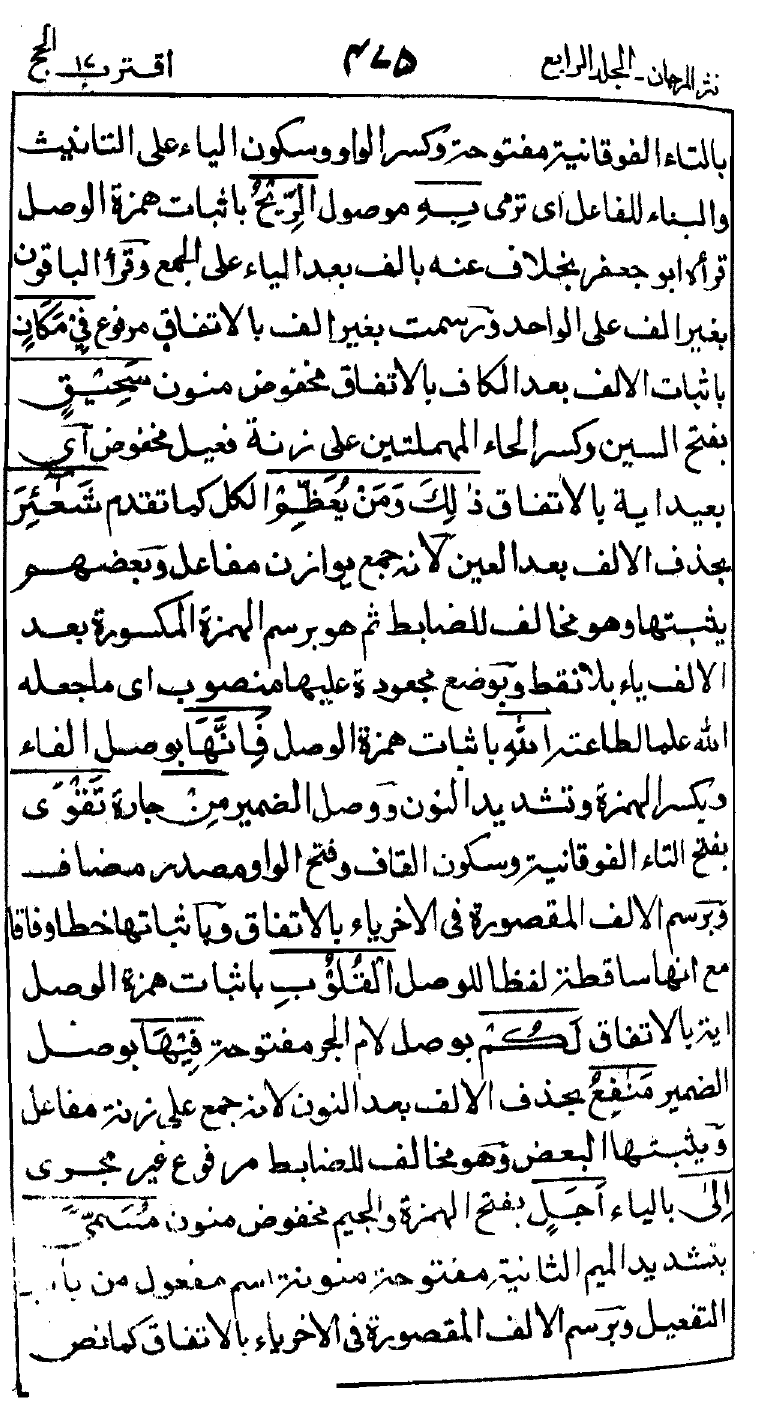 نثر المرجان۔ المجلد الرابع ٤٦٥ اقترب ١٧ الحج
بالتاء الفوقانية مفتوحة وكسر الواو وسكون الياء على التانيث
والبناء للفاعل اى ترمى بِهِ موصول الرِّيْحُ باثبات همزة الوصل
قرأه ابو جعفر بخلاف عنه بالف بعد الياء على الجمع وقرأ الباقون
بغير الف على الواحد ورسمت بغير الف بالاتفاق مرفوع فِيْ مَكَانٍ
باثبات الالف بعد الكاف بالاتفاق مخفوض منون سَحِيْقٍ
بفتح السين وكسر الحاء المهملتين على زنة فعيل مخفوض اى
بعيد اية بالاتفاق ذٰلِكَ وَمَنْ يُعَظِّمْ الكل كما تقدم شَعَٰٓئِرَ
بحذف الالف بعد العين لانه جمع يوازن مفاعل وبعضهم
يثبتها وهو مخالف للضابط ثم هو برسم الهمزة المكسورة بعد
الالف ياء بلا نقط وبوضع مجعودة عليها منصوب اى ما جعله
الله علما لطاعته اللهِ باثبات همزة الوصل فَاِنَّهَا بوصل الفاء
وبكسر الهمزة وتشديد النون ووصل الضمير مِنْ جارة تَقْوَى
بفتح التاء الفوقانية وسكون القاف وفتح الواو مصدر مضاف
وبرسم الالف المقصورة فى الاخر ياء بالاتفاق وباثباتها خطا وفاقا
مع انها ساقطة لفظا للوصل الْقُلُوْبِ باثبات همزة الوصل
اية بالاتفاق لَكُمْ بوصل لام الجر مفتوحة فِيْهَا بوصل
الضمير مَنَٰفِعُ بحذف الالف بعد النون لانه جمع على زنة مفاعل
ويثبتها البعض وهو مخالف للضابط مرفوع غير مجرى
اِلٰى بالياء اَجَلٍ بفتح الهمزة والجيم مخفوض منون مُسَمًّى
بتشديد الميم الثانية مفتوحة منونة اسم مفعول من باب
التفعيل وبرسم الالف المقصورة فى الاخر ياء بالاتفاق كما نص